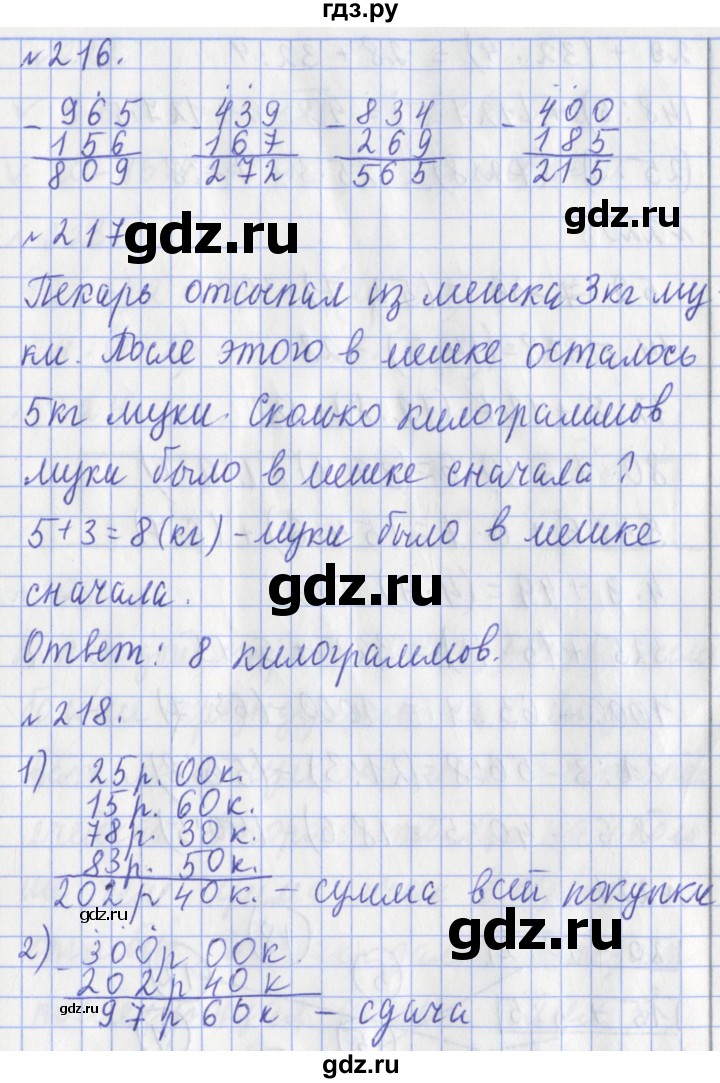 гдз.ру
№216.
- 965 - 439 - 834 - 400
156 167 269 185
809 272 565 215
gdz.ru
№217
gdz.ru
Пекарь отсыпал из мешка 3кг му-
ки. После этого в мешке осталось
5кг муки. Сколько килограммов
муки было в мешке сначала?
5+3=8(кг) - муки было в мешке
gdz.ru
сначала.
Ответ: 8 килограммов.
№218.
1) 25р. 00к.
15р. 60к.
78р. 30к.
83р. 50к.
202р 40к. - сумма всей покупки
gdz.ru
gdz.ru
2) - 300р 00к.
202р 40к
97р 60к - сдача
gdz.ru
gdz.ru